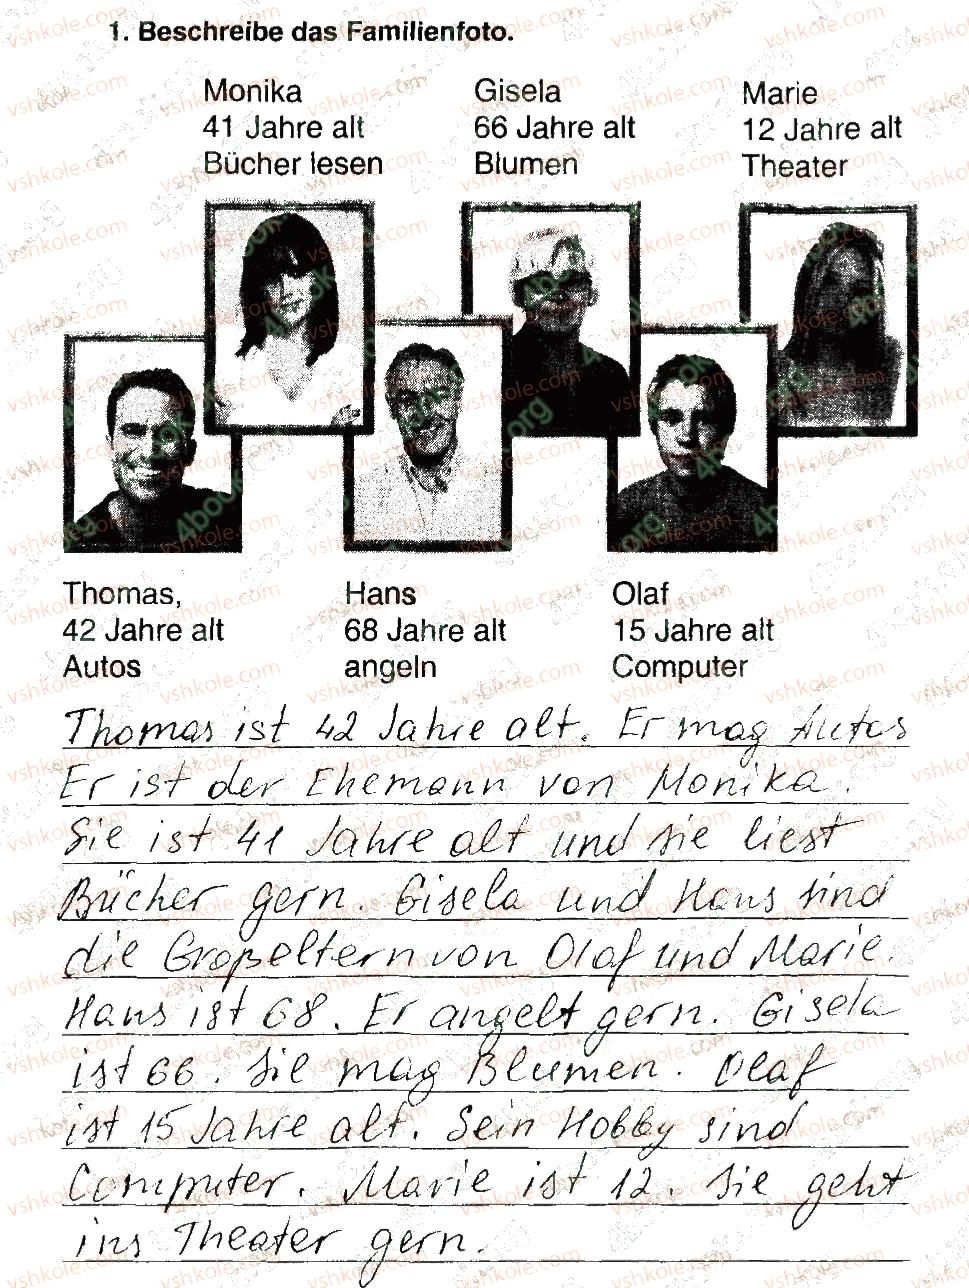 1. Beschreibe das Familienfoto.
Monika
41 Jahre alt
Bücher lesen
Gisela
66 Jahre alt
Blumen
Marie
12 Jahre alt
Theater
Thomas,
42 Jahre alt
Autos
Hans
68 Jahre alt
angeln
Olaf
15 Jahre alt
Computer
Thomas ist 42 Jahre alt. Er mag Autos
Er ist der Ehemann von Monika.
Sie ist 41 Jahre alt und sie liest
Bücher gern. Gisela und Hans sind
die Großeltern von Olaf und Marie.
Hans ist 68. Er angelt gern. Gisela
ist 66. Sie mag Blumen. Olaf
ist 15 Jahre alt. Sein Hobby sind
Computer. Marie ist 12. Sie geht
ins Theater gern.
vshkole.com
4book.org